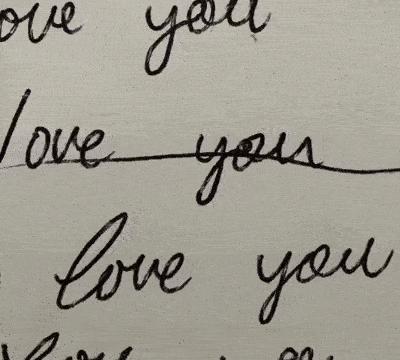 ove you
love you
love you